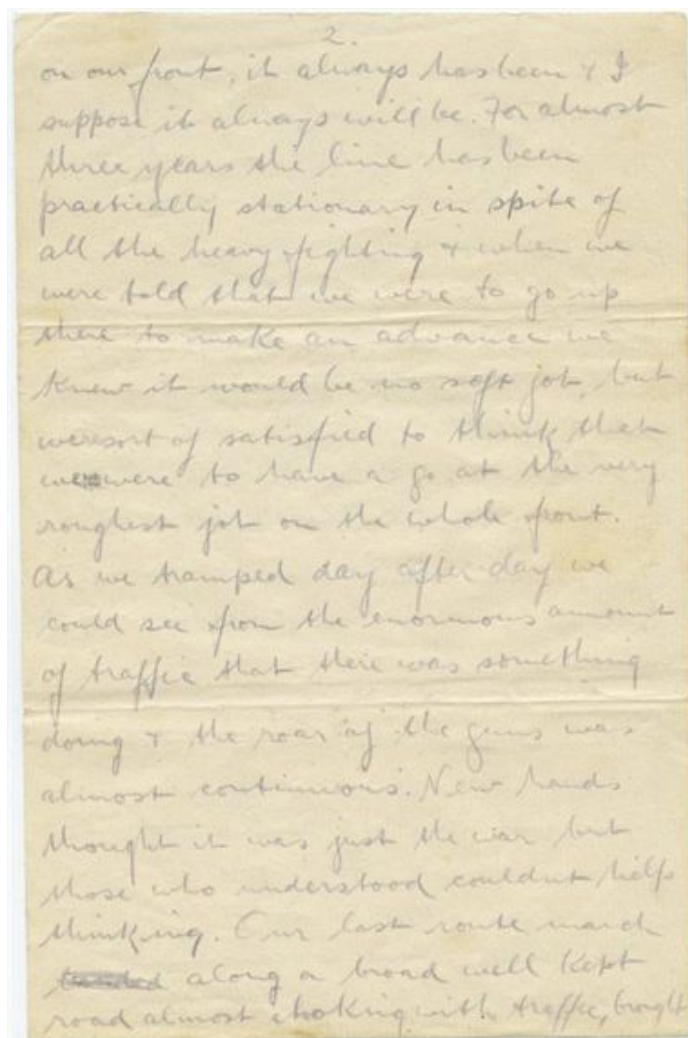 2.
on our front, it always has been & I
suppose it always will be. For almost
three years the line has been
practically stationary in spite of
all the heavy fighting & when we
were told that we were to go up
there to make an advance we
knew it would be no soft job, but
were sort of satisfied to think that
we were to have a go at the very
roughest job on the whole front.
As we tramped day after day we
could see from the enormous amount
of traffic that there was something
doing & the roar of the guns was
almost continuous. New hands
thought it was just the war but
those who understood couldnt help
thinking. Our last route march
along a broad well kept
road almost choking with traffic, brought